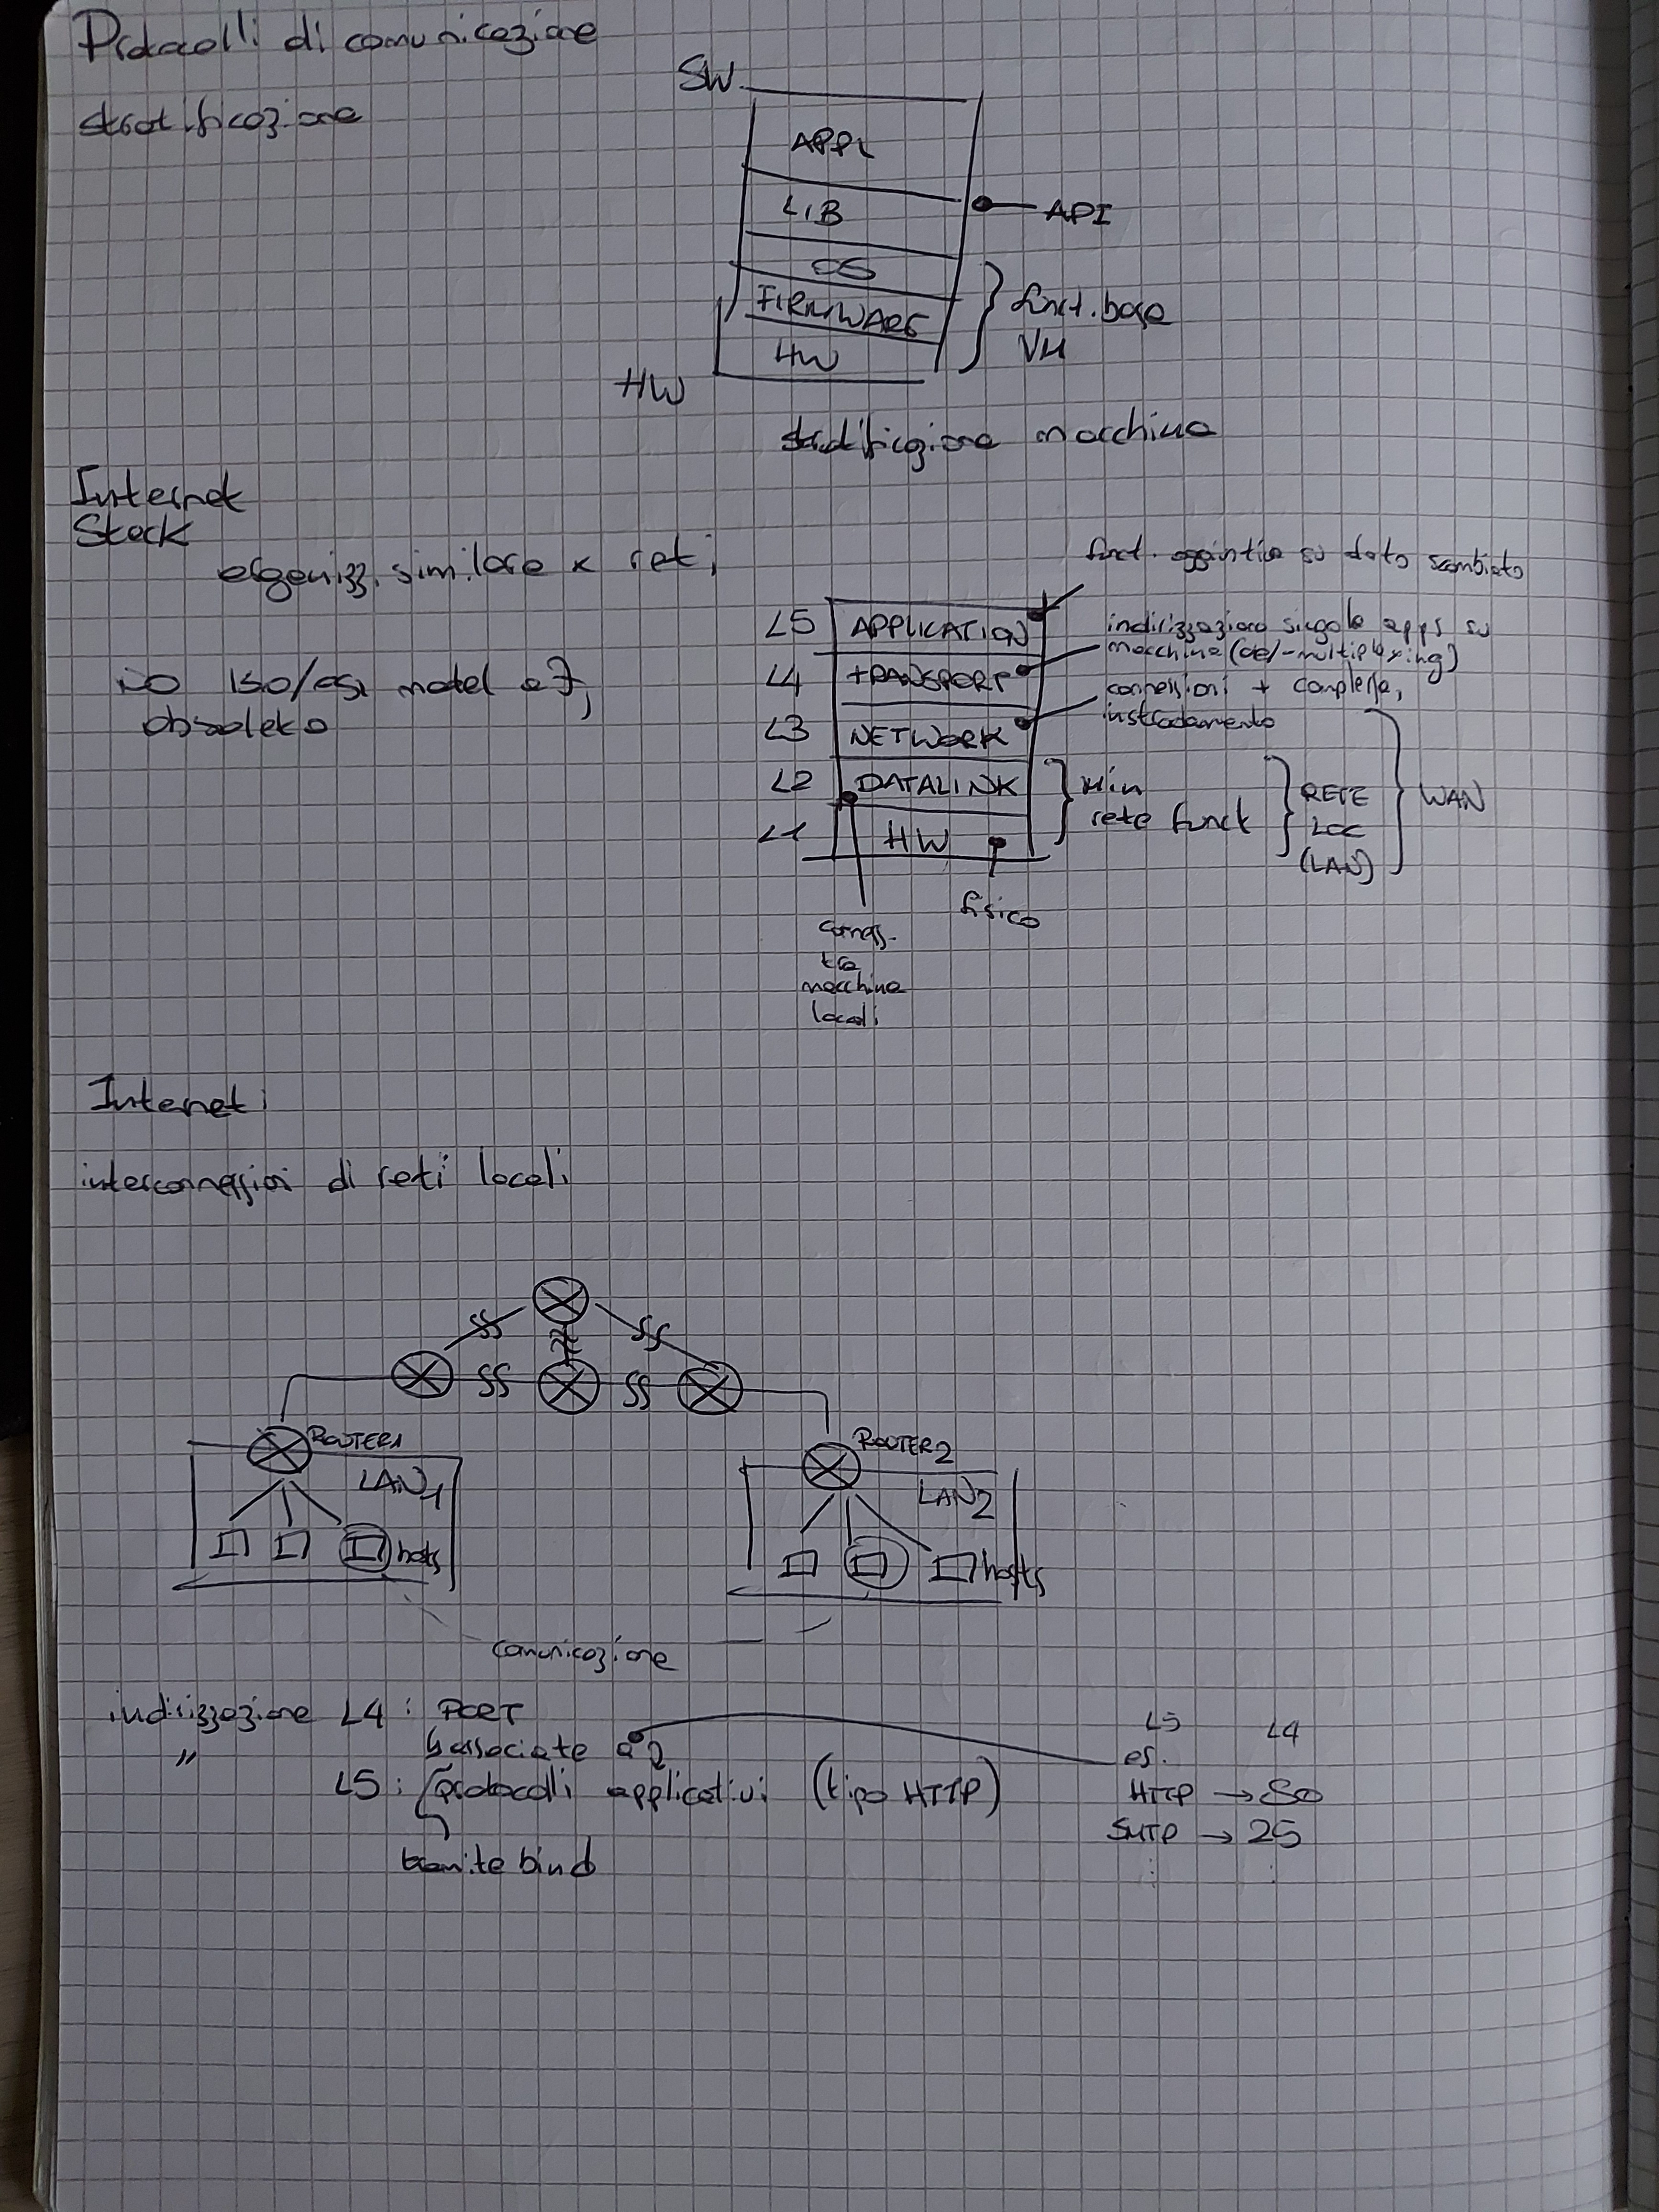 Protocolli di comunicazione
stratificazione
SW
APPL
LIB
API
OS
FIRMWARE
funct. base
VM
HW
HW
stratificazione macchina
Internet
Stack
organizz. similare x reti
funct. aggiuntive su dato scambiato
L5 APPLICATION
indirizzazione singole apps su
macchina (de/-multiplexing)
L4 TRANSPORT
connessioni + complesse,
instradamento
L3 NETWORK
NO ISO/OSI model a 7,
obsoleto
L2 DATALINK
L1 HW
Min
rete funct
RETE
LOC
(LAN)
WAN
fisico
conness.
tra
macchine
locali
Internet:
interconnessioni di reti locali
ROUTER1
LAN1
hosts
ROUTER2
LAN2
hosts
comunicazione
indirizzazione L4: PORT
associate a
" L5: protocolli applicativi (tipo HTTP)
tramite bind
L5 L4
es.
HTTP → 80
SMTP → 25